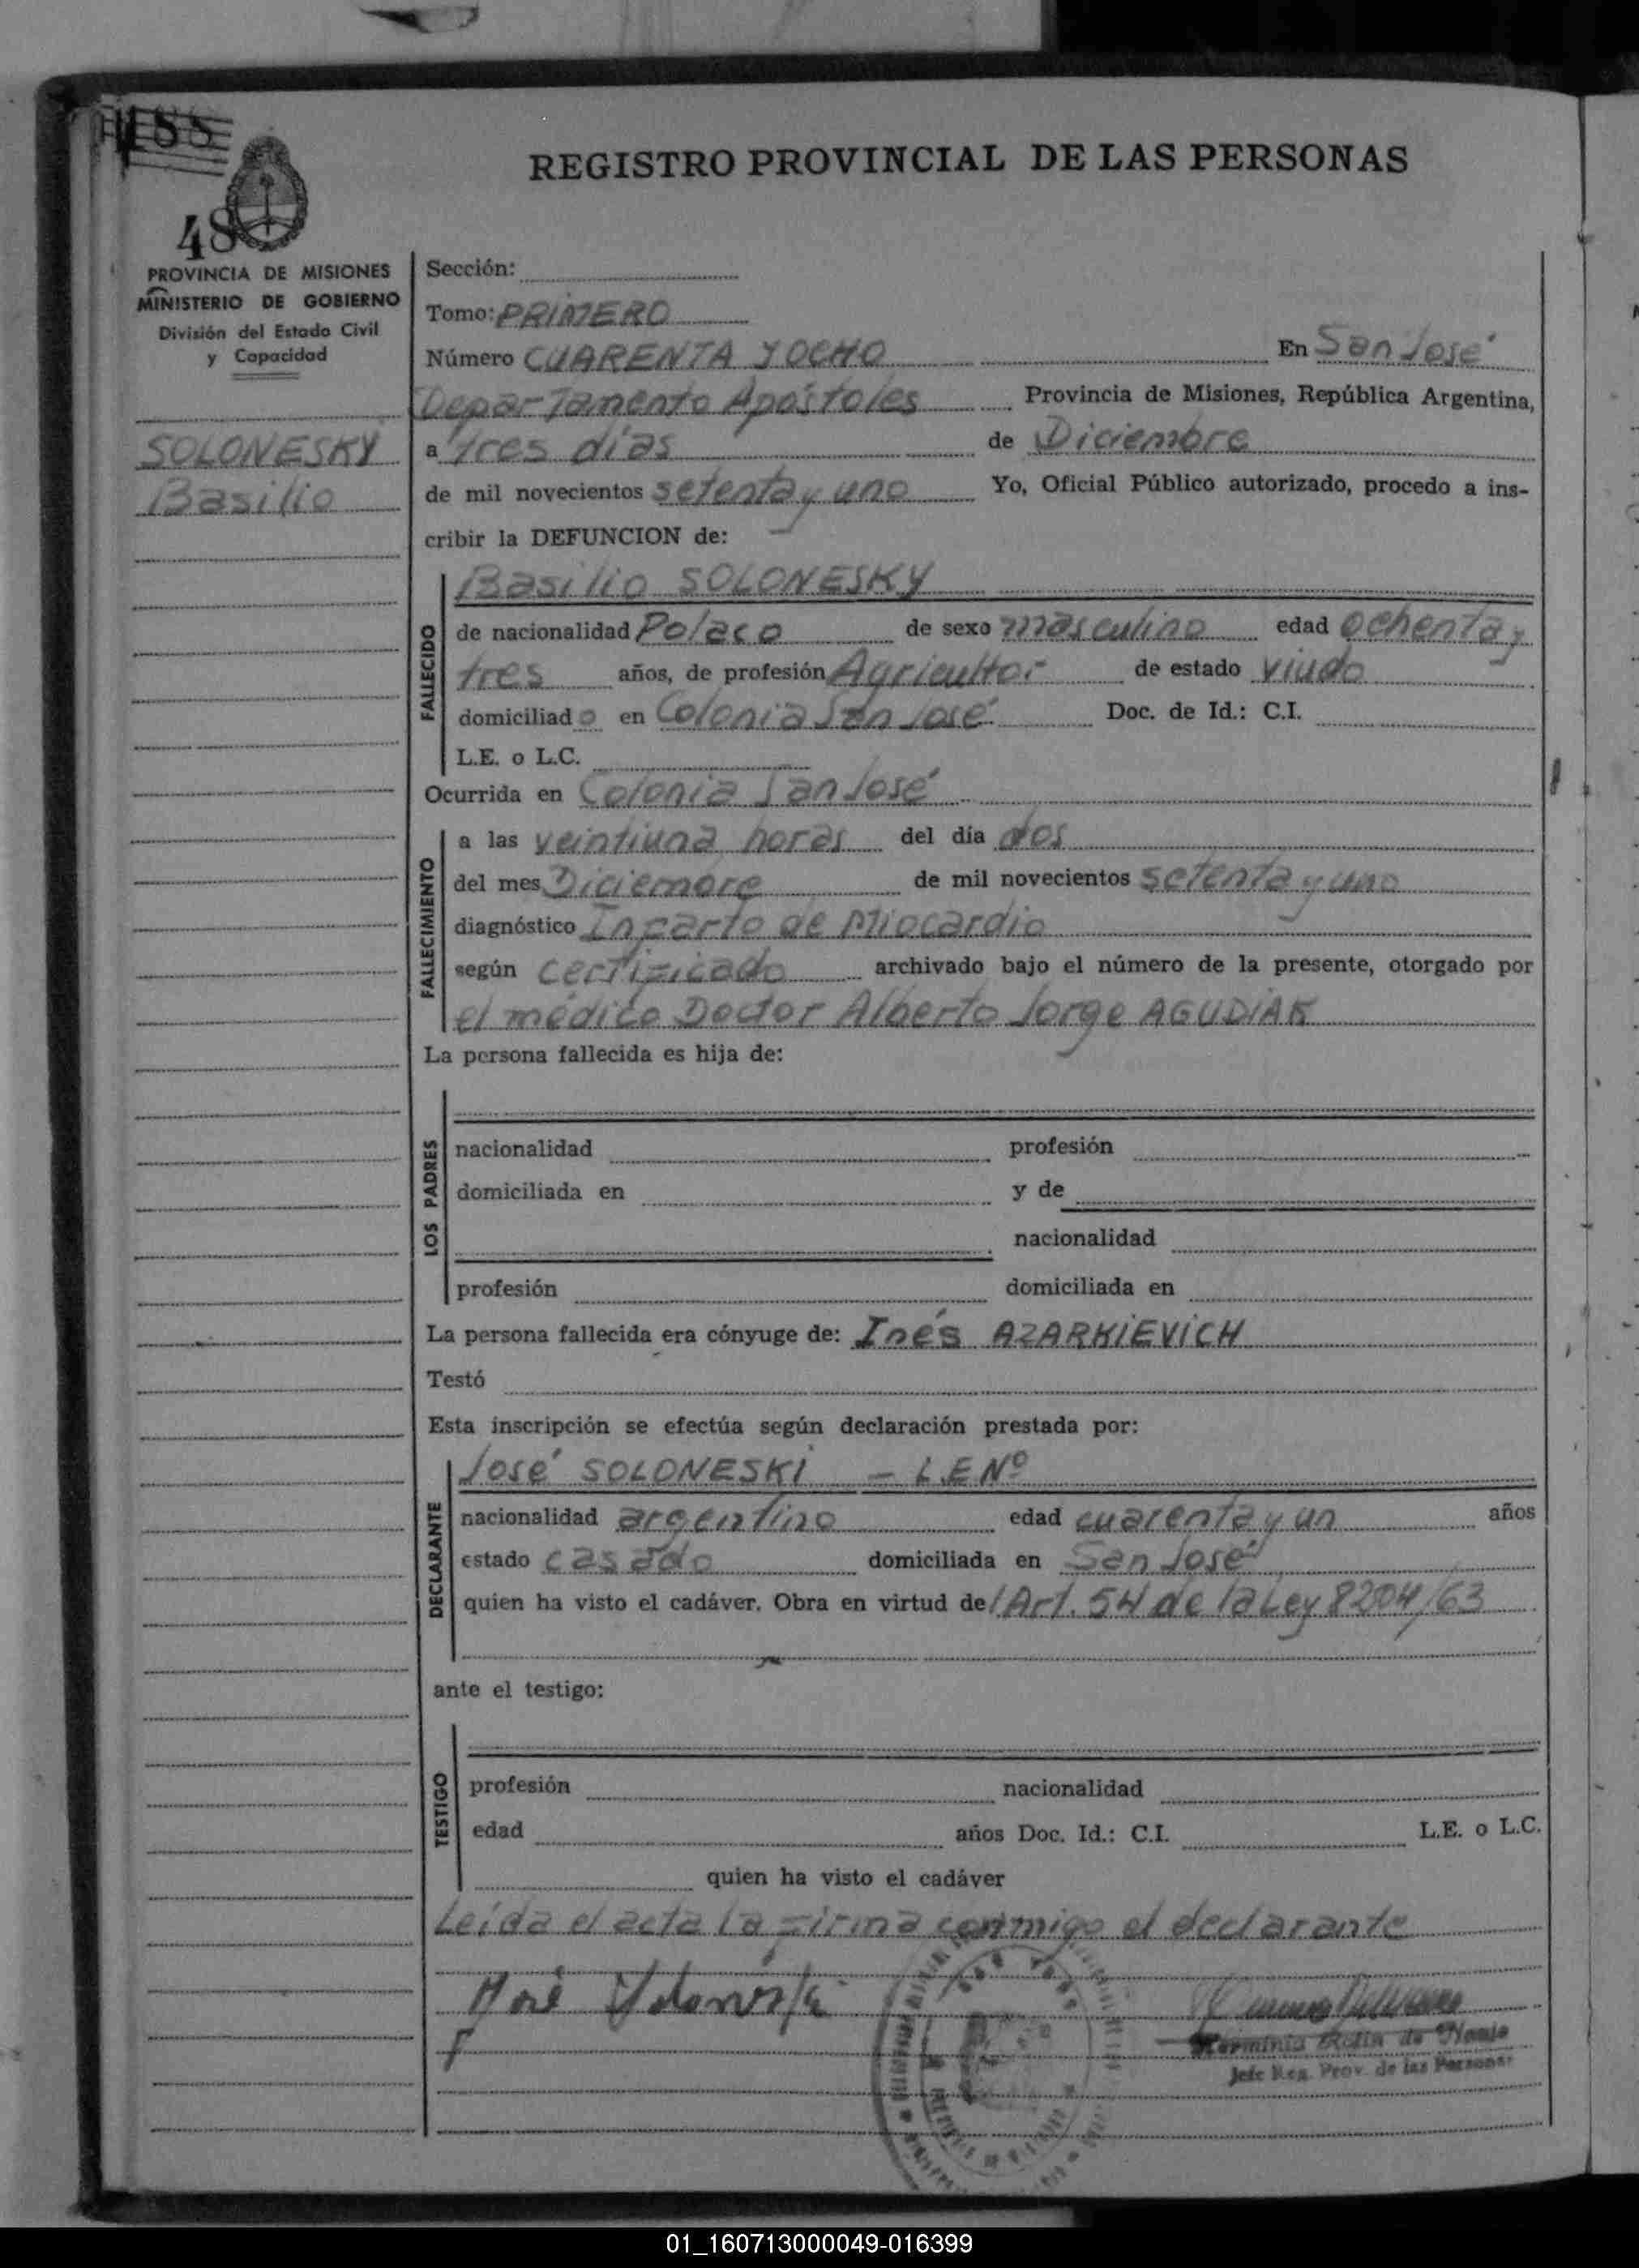 REGISTRO PROVINCIAL DE LAS PERSONAS
48
PROVINCIA DE MISIONES
MINISTERIO DE GOBIERNO
División del Estado Civil
y Capacidad
SOLONESKY
Basilio
Sección:
Tomo: PRIMERO
Número CUARENTA Y OCHO En San José
Departamento Apóstoles Provincia de Misiones, República Argentina,
a tres días de Diciembre
de mil novecientos setenta y uno Yo, Oficial Público autorizado, procedo a ins-
cribir la DEFUNCION de:
FALLECIDO
Basilio SOLONESKY
de nacionalidad Polaco de sexo masculino edad ochenta y
tres años, de profesión Agricultor de estado viudo
domiciliado en Colonia San José Doc. de Id.: C.I.
L.E. o L.C.
Ocurrida en Colonia San José
FALLECIMIENTO
a las veintiuna horas del día dos
del mes Diciembre de mil novecientos setenta y uno
diagnóstico Infarto de Miocardio
según certificado archivado bajo el número de la presente, otorgado por
el médico Doctor Alberto Jorge AGUDIAK
La persona fallecida es hija de:
LOS PADRES
nacionalidad profesión
domiciliada en y de
nacionalidad
profesión domiciliada en
La persona fallecida era cónyuge de: Inés AZARKIEVICH
Testó
Esta inscripción se efectúa según declaración prestada por:
DECLARANTE
José SOLONESKI - L.E Nº
nacionalidad argentino edad cuarenta y un años
estado casado domiciliada en San José
quien ha visto el cadáver. Obra en virtud del Art. 54 de la Ley 8204/63
ante el testigo:
TESTIGO
profesión nacionalidad
edad años Doc. Id.: C.I. L.E. o L.C.
quien ha visto el cadáver
Leída el acta la firma conmigo el declarante
José
Jefe Reg. Prov. de las Personas
01_160713000049-016399